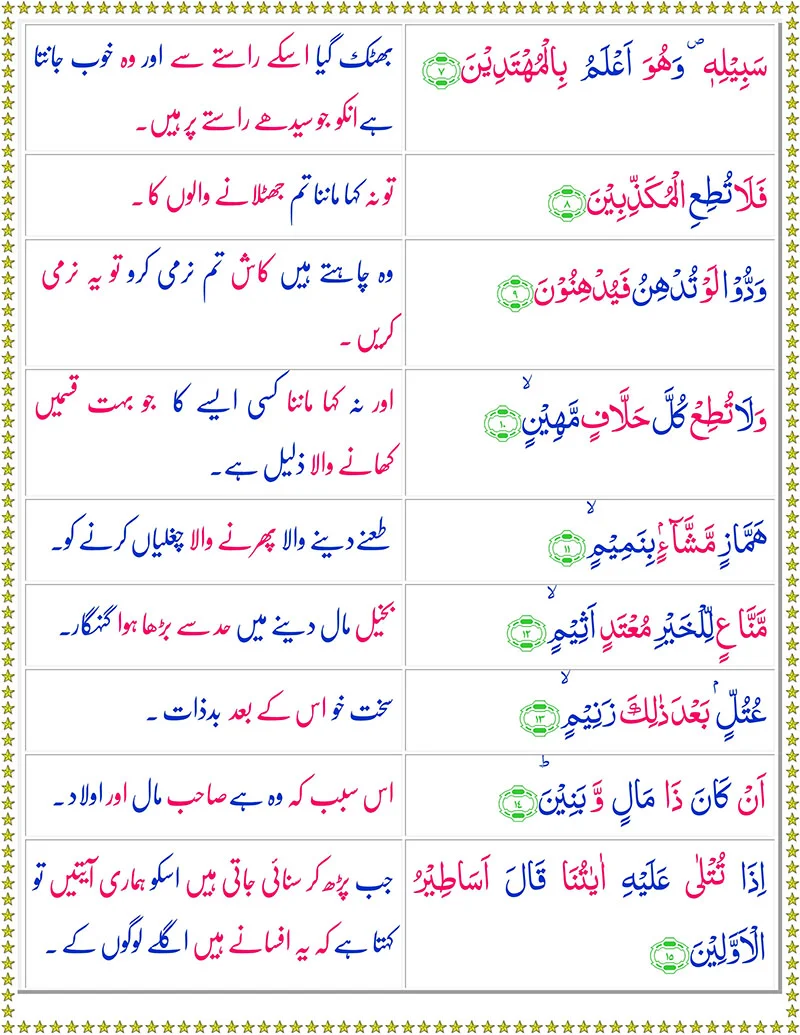 سَبِيْلِهٖ ۪ وَهُوَ اَعْلَمُ بِالْمُهْتَدِيْنَ ۷
بھٹک گیا اسکے راستے سے اور وہ خوب جانتا
ہے انکو جو سیدھے راستے پر ہیں۔
فَلَا تُطِعِ الْمُكَذِّبِيْنَ ۸
تو نہ کہا ماننا تم جھٹلانے والوں کا۔
وَدُّوْا لَوْ تُدْهِنُ فَيُدْهِنُوْنَ ۹
وہ چاہتے ہیں کاش تم نرمی کرو تو یہ نرمی
کریں۔
وَلَا تُطِعْ كُلَّ حَلَّافٍ مَّهِيْنٍ ۙ ۱۰
اور نہ کہا ماننا کسی ایسے کا جو بہت قسمیں
کھانے والا ذلیل ہے۔
هَمَّازٍ مَّشَّآءٍۭ بِنَمِيْمٍ ۙ ۱۱
طعنے دینے والا پھرنے والا چغلیاں کرنے کو۔
مَّنَّاعٍ لِّلْخَيْرِ مُعْتَدٍ اَثِيْمٍ ۙ ۱۲
بخیل مال دینے میں حد سے بڑھا ہوا گنہگار۔
عُتُلٍّۭ بَعْدَ ذٰلِكَ زَنِيْمٍ ۙ ۱۳
سخت خو اس کے بعد بدذات۔
اَنْ كَانَ ذَا مَالٍ وَّ بَنِيْنَ ؕ ۱۴
اس سبب کہ وہ ہے صاحب مال اور اولاد۔
اِذَا تُتْلٰى عَلَيْهِ اٰيٰتُنَا قَالَ اَسَاطِيْرُ
الْاَوَّلِيْنَ ۱۵
جب پڑھ کر سنائی جاتی ہیں اسکو ہماری آیتیں تو
کہتا ہے کہ یہ افسانے ہیں اگلے لوگوں کے۔